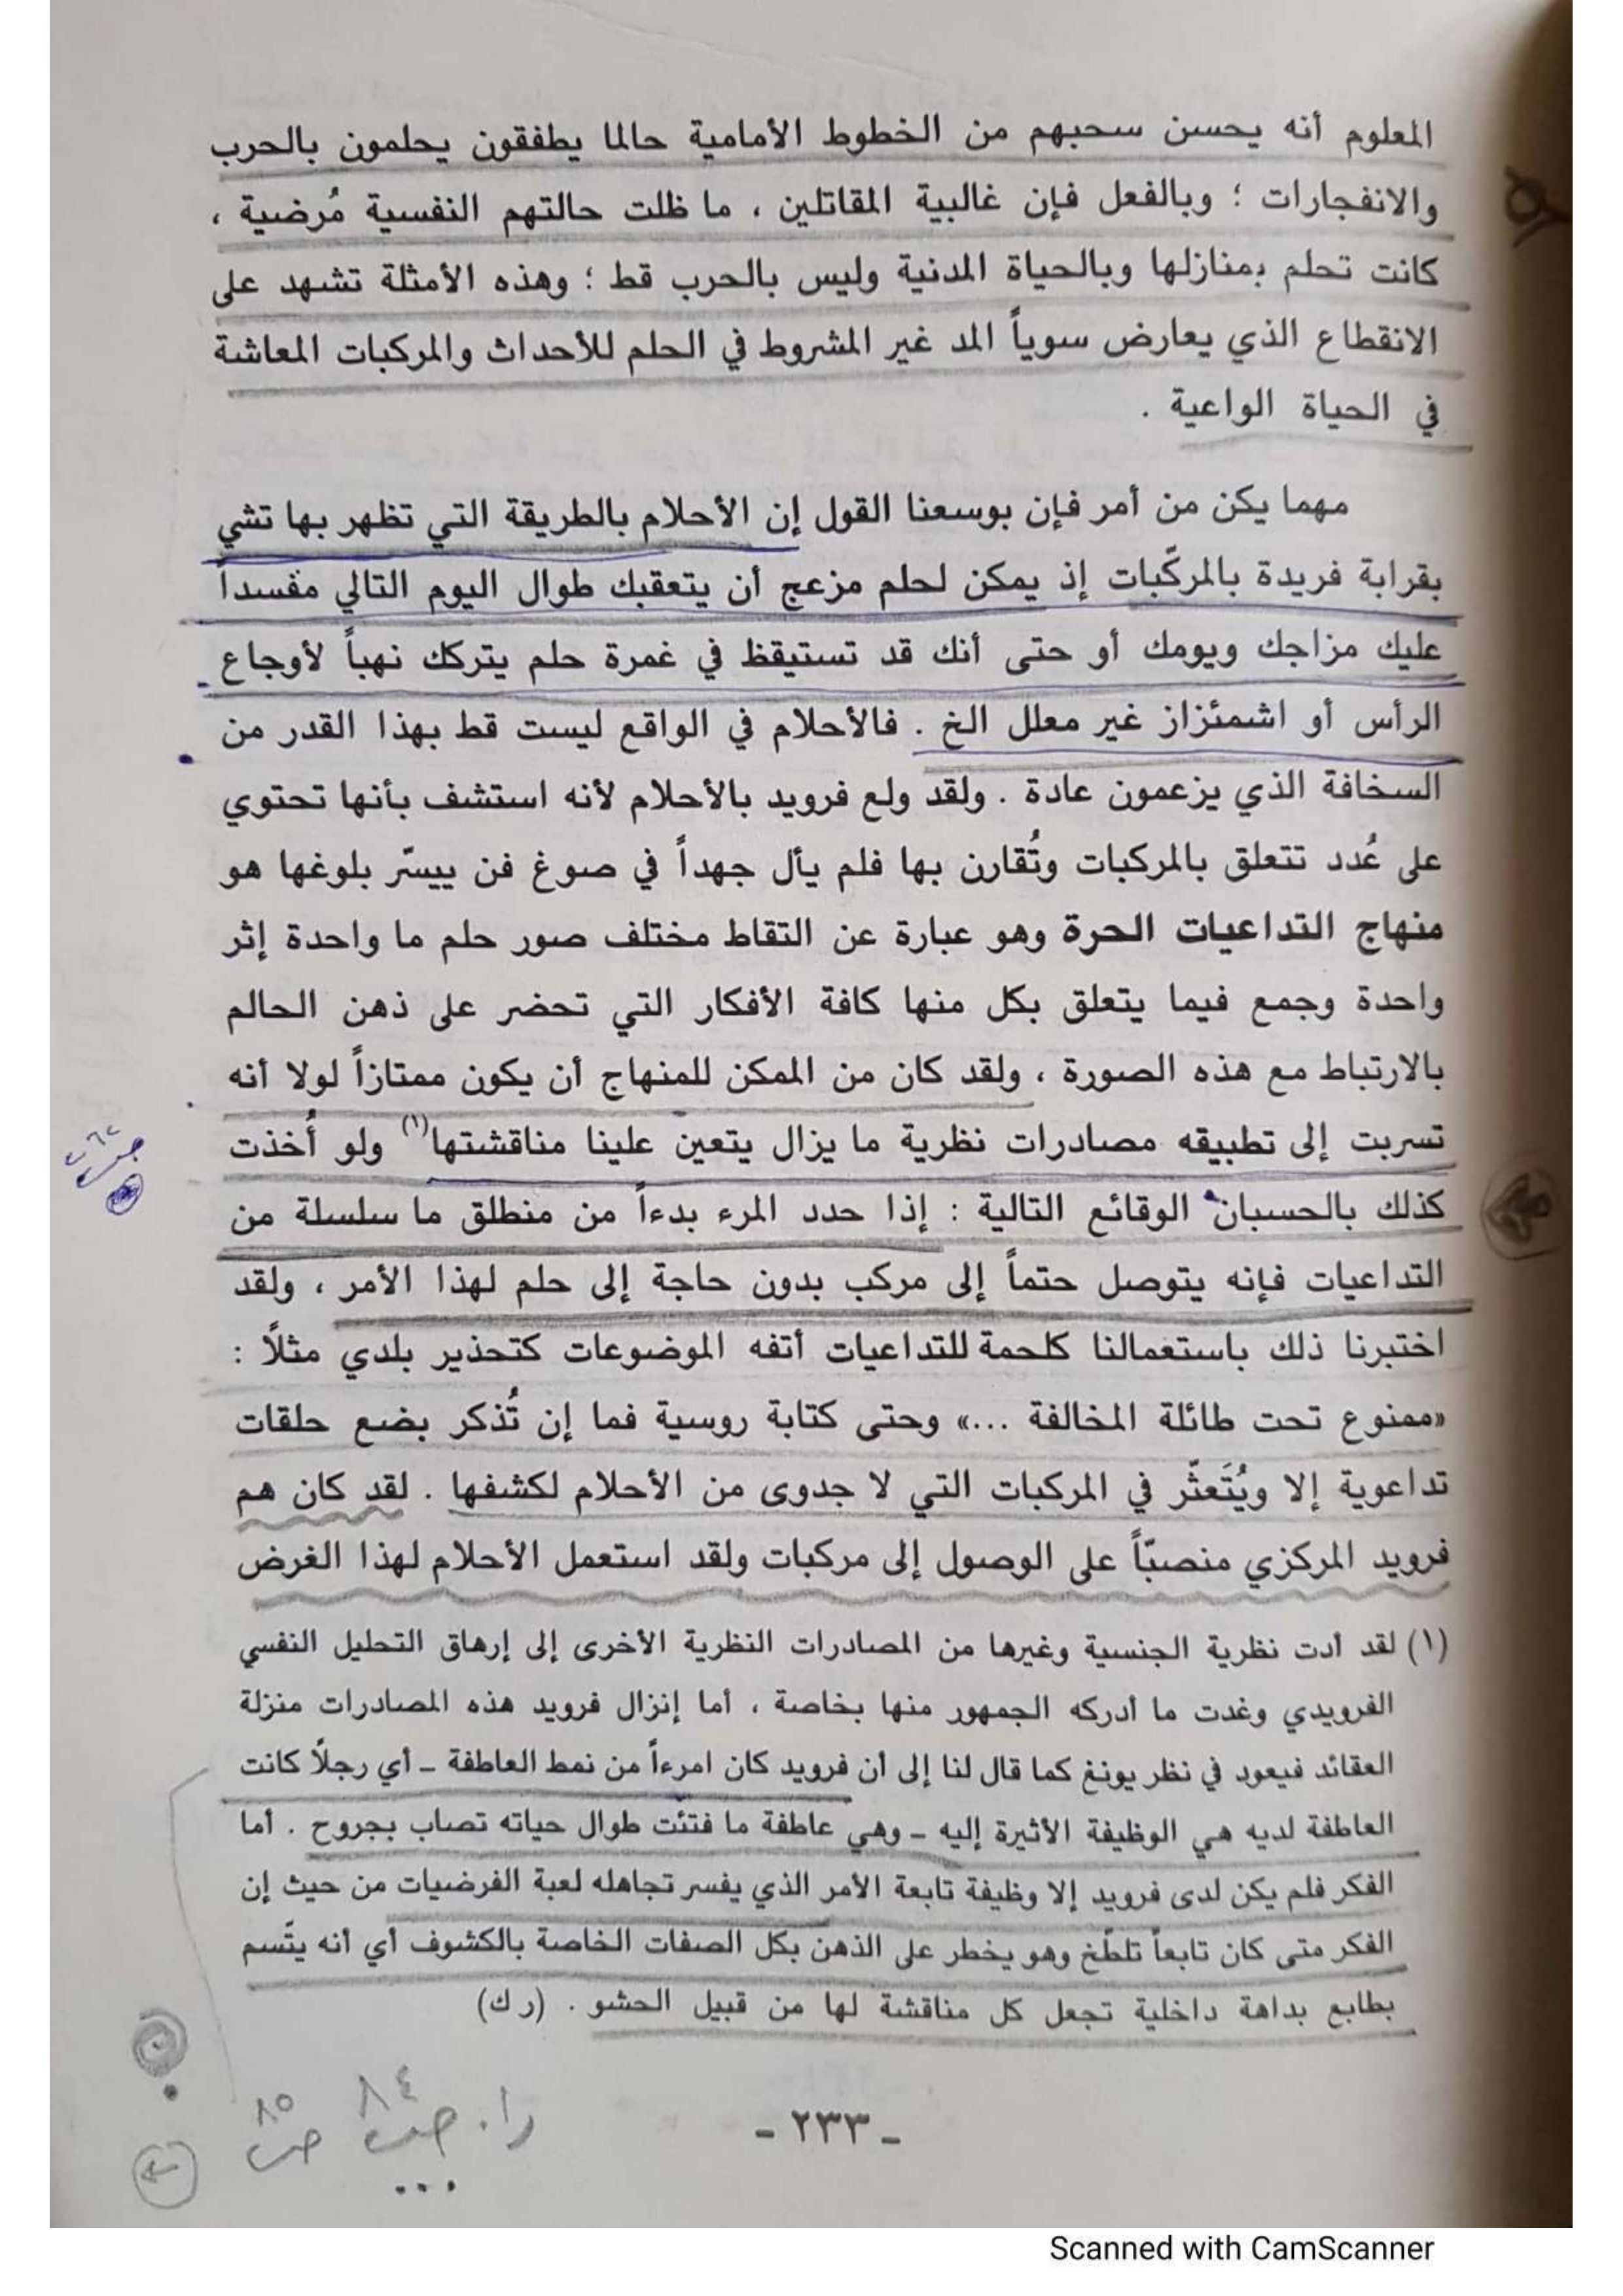 المعلوم أنه يحسن سحبهم من الخطوط الأمامية حالما يطفقون يحلمون بالحرب
والانفجارات ؛ وبالفعل فإن غالبية المقاتلين ، ما ظلت حالتهم النفسية مُرضية ،
كانت تحلم بمنازلها وبالحياة المدنية وليس بالحرب قط ؛ وهذه الأمثلة تشهد على
الانقطاع الذي يعارض سوياً المد غير المشروط في الحلم للأحداث والمركبات المعاشة
في الحياة الواعية .
مهما يكن من أمر فإن بوسعنا القول إن الأحلام بالطريقة التي تظهر بها تشي
بقرابة فريدة بالمركّبات إذ يمكن لحلم مزعج أن يتعقبك طوال اليوم التالي مفسداً
عليك مزاجك ويومك أو حتى أنك قد تستيقظ في غمرة حلم يتركك نهباً لأوجاع
الرأس أو اشمئزاز غير معلل الخ . فالأحلام في الواقع ليست قط بهذا القدر من
السخافة الذي يزعمون عادة . ولقد ولع فرويد بالأحلام لأنه استشف بأنها تحتوي
على عُدد تتعلق بالمركبات وتُقارن بها فلم يأل جهداً في صوغ فن ييسّر بلوغها هو
منهاج التداعيات الحرة وهو عبارة عن التقاط مختلف صور حلم ما واحدة إثر
واحدة وجمع فيما يتعلق بكل منها كافة الأفكار التي تحضر على ذهن الحالم
بالارتباط مع هذه الصورة ، ولقد كان من الممكن للمنهاج أن يكون ممتازاً لولا أنه
تسربت إلى تطبيقه مصادرات نظرية ما يزال يتعين علينا مناقشتها(١) ولو أُخذت
كذلك بالحسبان الوقائع التالية : إذا حدد المرء بدءاً من منطلق ما سلسلة من
التداعيات فإنه يتوصل حتماً إلى مركب بدون حاجة إلى حلم لهذا الأمر ، ولقد
اختبرنا ذلك باستعمالنا كلحمة للتداعيات أتفه الموضوعات كتحذير بلدي مثلاً :
«ممنوع تحت طائلة المخالفة ...» وحتى كتابة روسية فما إن تُذكر بضع حلقات
تداعوية إلا ويُتَعثّر في المركبات التي لا جدوى من الأحلام لكشفها . لقد كان هم
فرويد المركزي منصبّاً على الوصول إلى مركبات ولقد استعمل الأحلام لهذا الغرض
(١) لقد أدت نظرية الجنسية وغيرها من المصادرات النظرية الأخرى إلى إرهاق التحليل النفسي
الفرويدي وغدت ما أدركه الجمهور منها بخاصة ، أما إنزال فرويد هذه المصادرات منزلة
العقائد فيعود في نظر يونغ كما قال لنا إلى أن فرويد كان امرءاً من نمط العاطفة ـ أي رجلاً كانت
العاطفة لديه هي الوظيفة الأثيرة إليه ـ وهي عاطفة ما فتئت طوال حياته تصاب بجروح . أما
الفكر فلم يكن لدى فرويد إلا وظيفة تابعة الأمر الذي يفسر تجاهله لعبة الفرضيات من حيث إن
الفكر متى كان تابعاً تلطّخ وهو يخطر على الذهن بكل الصفات الخاصة بالكشوف أي أنه يتّسم
بطابع بداهة داخلية تجعل كل مناقشة لها من قبيل الحشو . (ر ك)
٨٤
٨٥
- ٢٣٣ -
Scanned with CamScanner